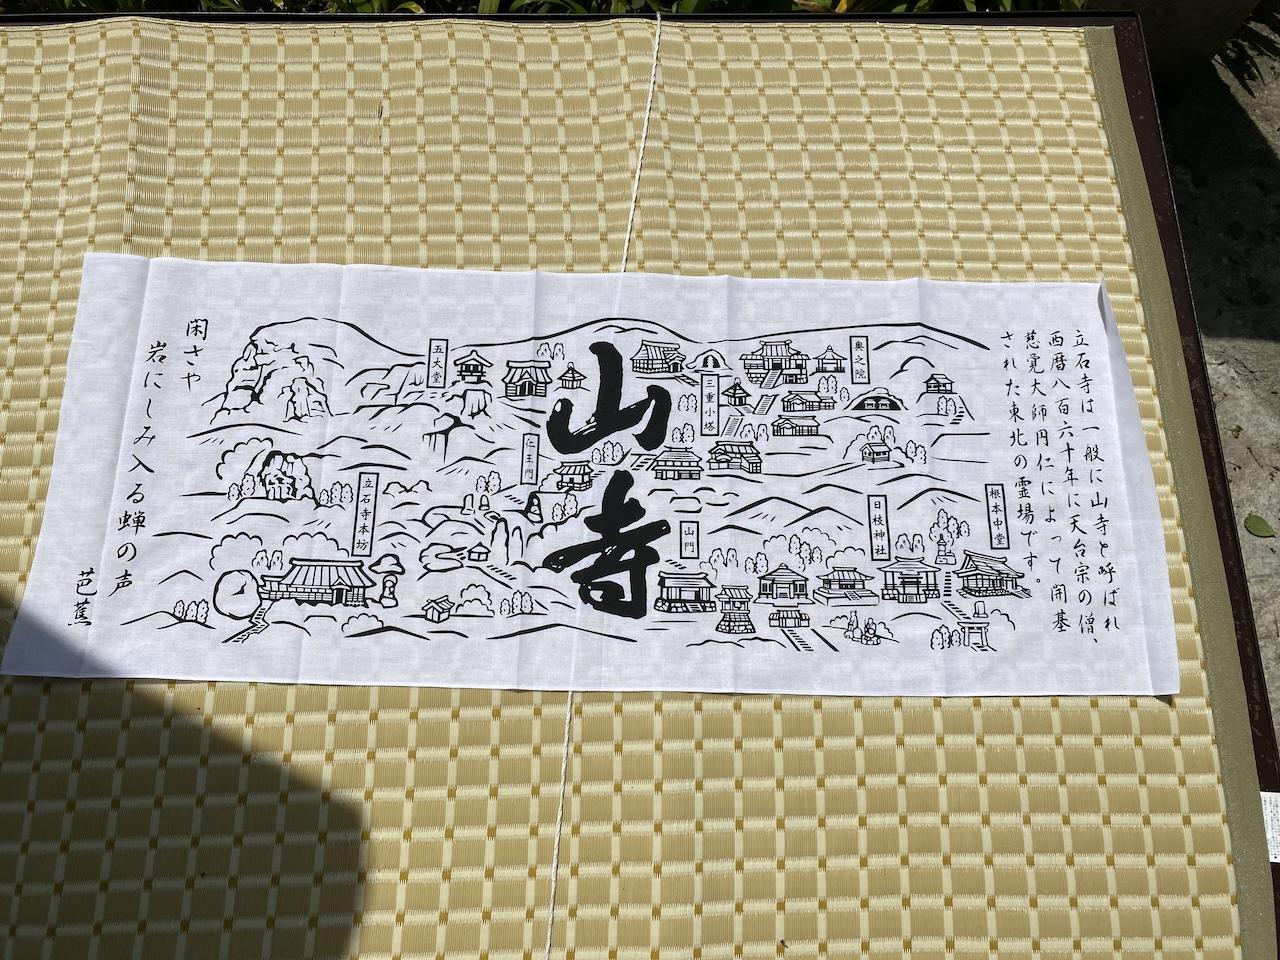 立石寺は一般に山寺と呼ばれ
西暦八百六十年に天台宗の僧、
慈覚大師円仁によって開基
された東北の霊場です。
奥之院
三重小塔
五大堂
仁王門
根本中堂
日枝神社
山門
立石寺本坊
山寺
閑さや
岩にしみ入る蝉の声
芭蕉